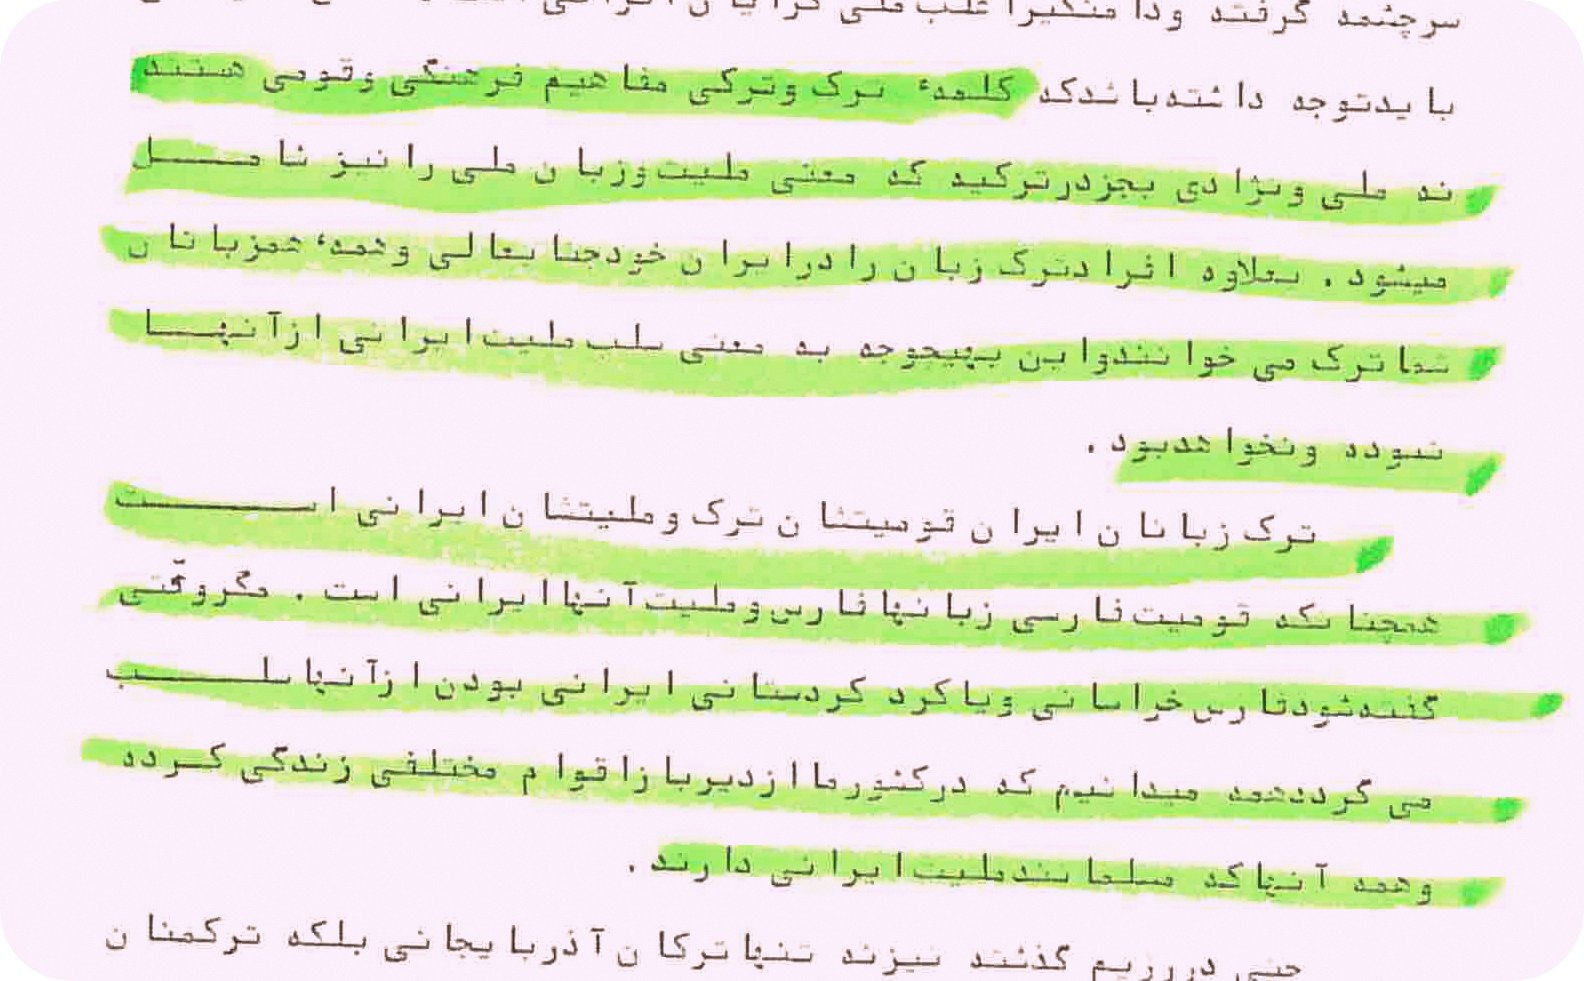 سرچشمه گرفته
باید توجه داشته باشد که کلمهٔ ترک و ترکی مفاهیم فرهنگی و قومی هستند
نه ملی و نژادی بجز در ترکیه که معنی ملیت و زبان ملی را نیز شامل
میشود . بعلاوه افراد ترک زبان را در ایران خود جنابعالی و همهٔ همزبانان
شما ترک می خوانند و این بهیچوجه به معنی سلب ملیت ایرانی از آنها
نبوده و نخواهد بود .
ترک زبانان ایران قومیتشان ترک و ملیتشان ایرانی است
همچنانکه قومیت فارسی زبانها فارس و ملیت آنها ایرانی است . مگر وقتی
گفته شود فارس خراسانی و یا کرد کردستانی ایرانی بودن از آنها سلب
می گردد همه میدانیم که در کشور ما از دیرباز اقوام مختلفی زندگی کرده
و همه آنها که مسلمانند ملیت ایرانی دارند .
حتی در رژیم گذشته نیز نه تنها ترکان آذربایجانی بلکه ترکمنان